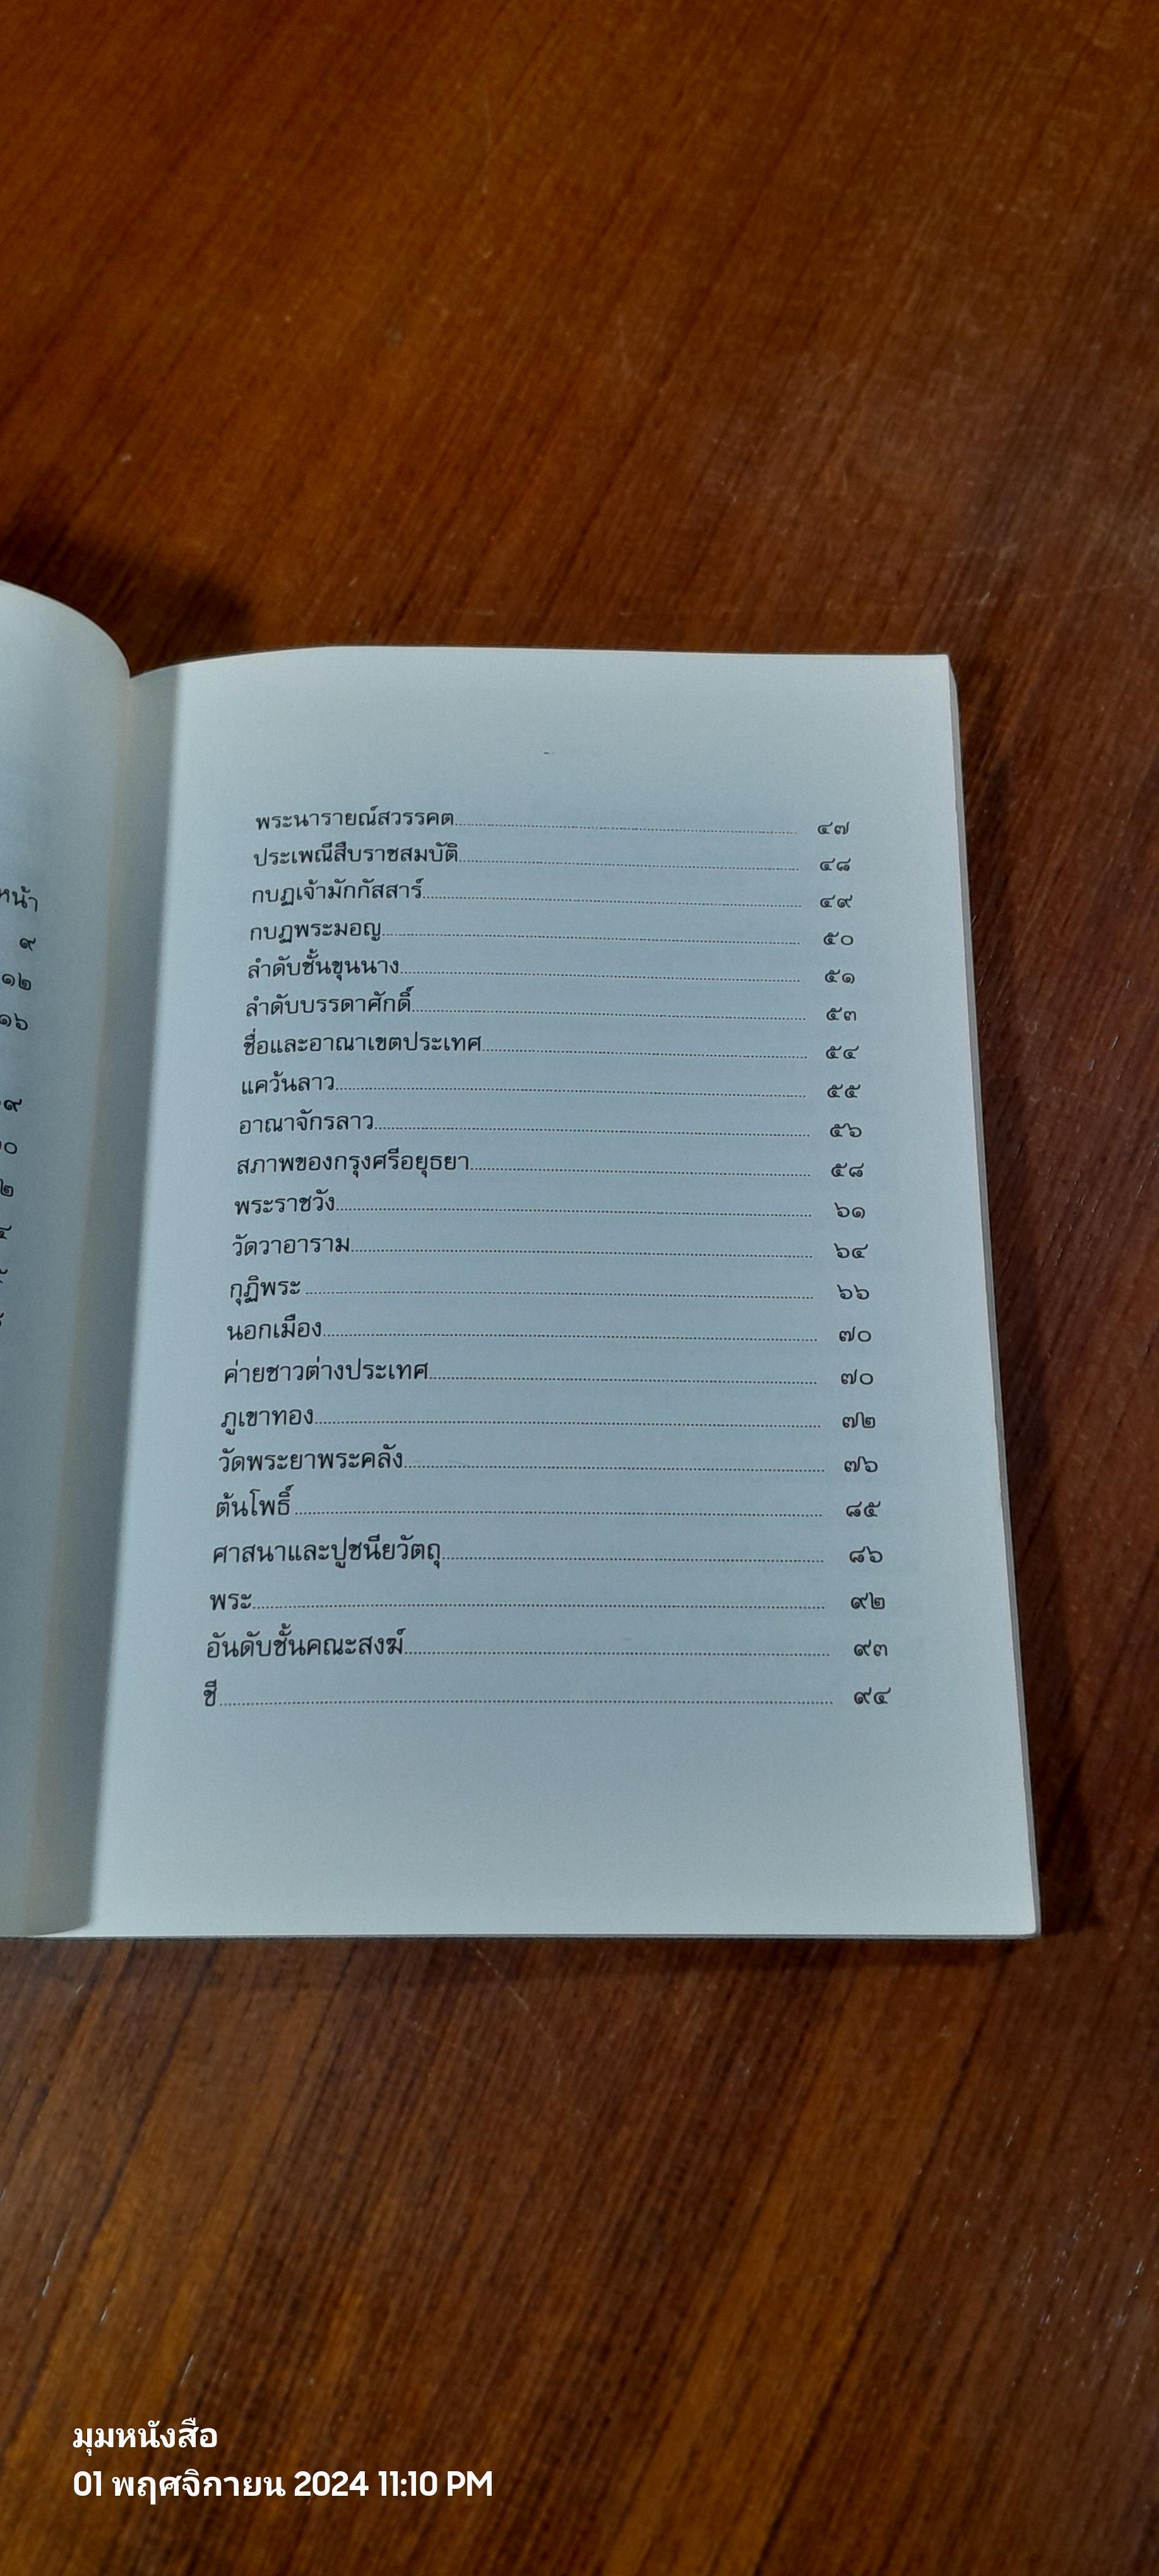 หน้า
๙
๑๒
๑๖
๑๙
พระนารายณ์สวรรคต ๔๗
ประเพณีสืบราชสมบัติ ๔๘
กบฏเจ้ามักกัสสาร์ ๔๙
กบฏพระมอญ ๕๐
ลำดับชั้นขุนนาง ๕๑
ลำดับบรรดาศักดิ์ ๕๓
ชื่อและอาณาเขตประเทศ ๕๔
แคว้นลาว ๕๕
อาณาจักรลาว ๕๖
สภาพของกรุงศรีอยุธยา ๕๘
พระราชวัง ๖๑
วัดวาอาราม ๖๔
กุฏิพระ ๖๖
นอกเมือง ๗๐
ค่ายชาวต่างประเทศ ๗๐
ภูเขาทอง ๗๒
วัดพระยาพระคลัง ๗๖
ต้นโพธิ์ ๘๕
ศาสนาและปูชนียวัตถุ ๘๖
พระ ๙๒
อันดับชั้นคณะสงฆ์ ๙๓
ชี ๙๔
มุมหนังสือ
01 พฤศจิกายน 2024 11:10 PM